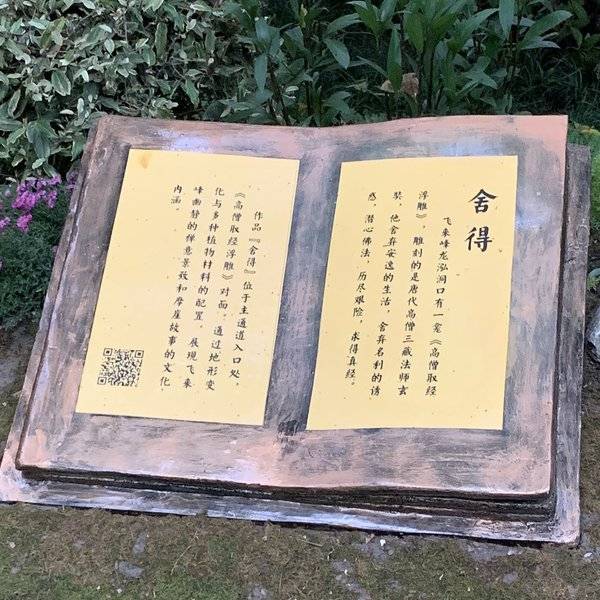 舍得
飞来峰龙泓洞口有一龛《高僧取经
浮雕》，雕刻的是唐代高僧三藏法师玄
奘，他舍弃安逸的生活，舍弃名利的诱
惑，潜心佛法，历尽艰险，求得真经。
作品『舍得』位于主通道入口处，
《高僧取经浮雕》对面，通过地形变
化与多种植物材料的配置，展现飞来
峰幽静的禅意景致和摩崖故事的文化
内涵。